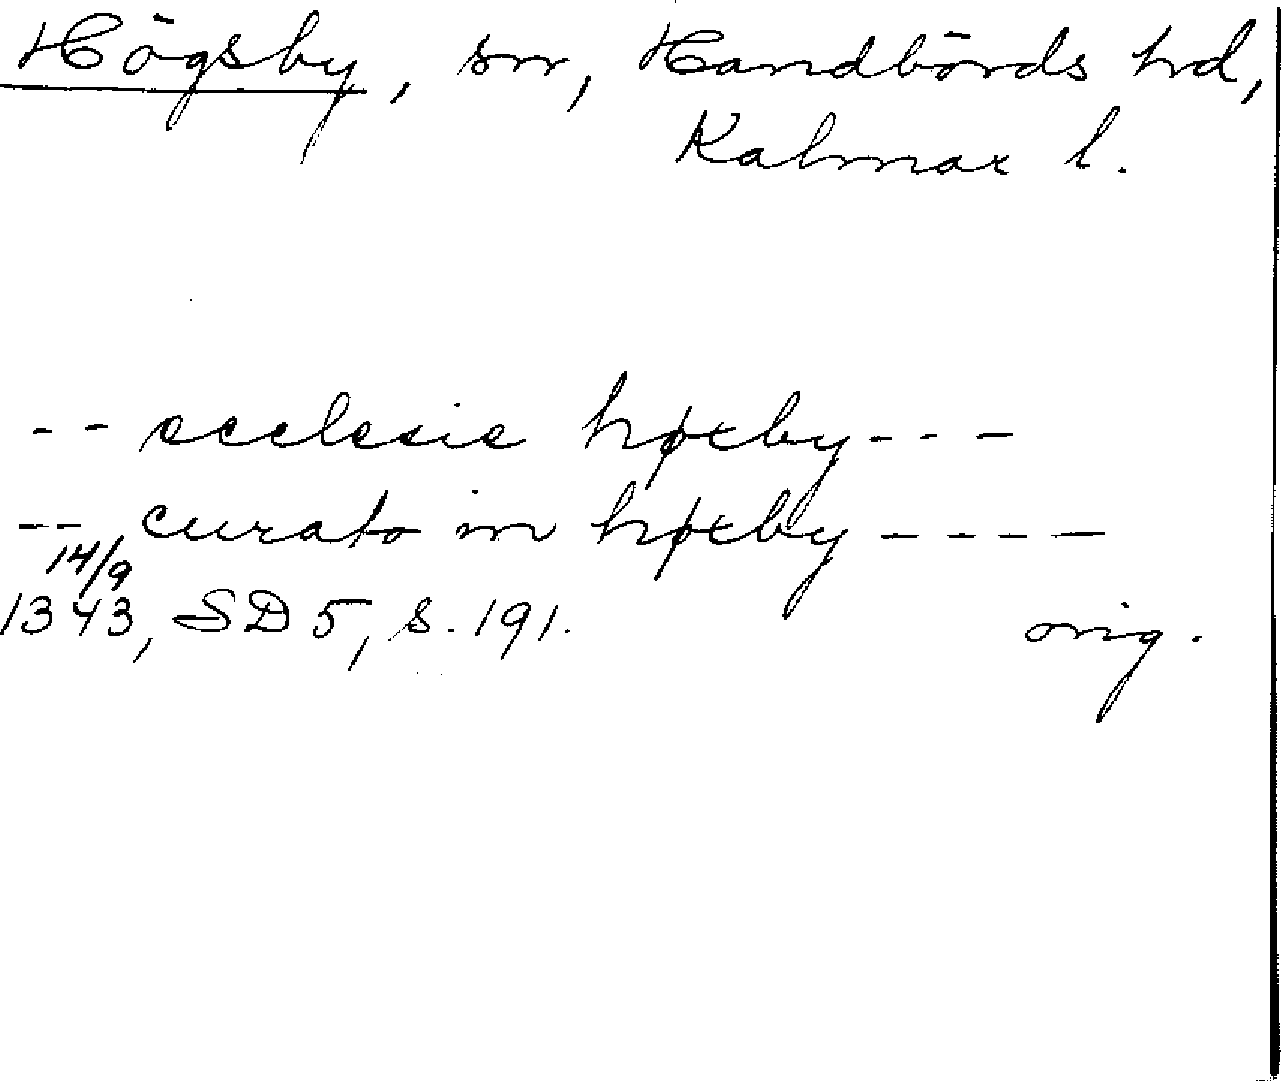 Högsby, sn, Handbörds hd,
Kalmar l.
-- ecclesie høxby---
-- curato in høxby ----
14/9
1343, SD 5, s. 191. orig.